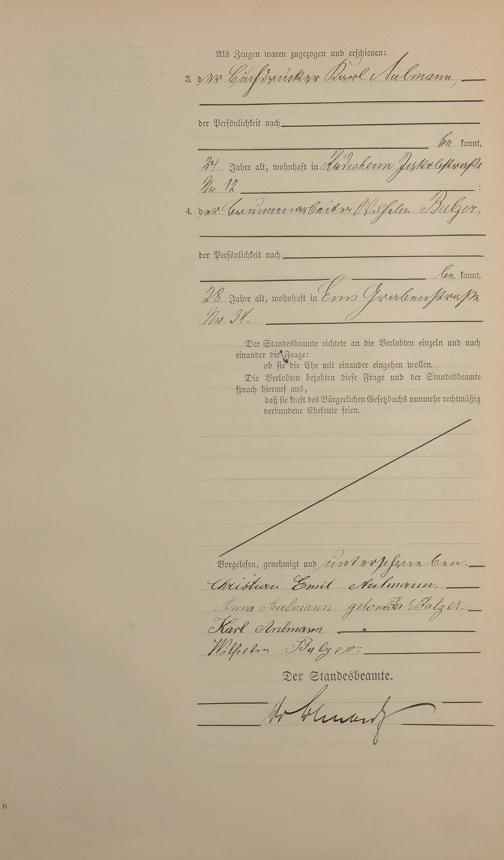 Als Zeugen waren zugezogen und erschienen:
3. der Buchdrucker Karl Aulmann,
der Persönlichkeit nach
be kannt,
24 Jahre alt, wohnhaft in Rüdesheim
Nr. 12 ;
4. der Brunnenarbeiter Wilhelm Balzer,
der Persönlichkeit nach
be kannt,
28 Jahre alt, wohnhaft in Ems Grabenstraße
Nr. 34.
Der Standesbeamte richtete an die Verlobten einzeln und nach
einander die Frage:
ob sie die Ehe mit einander eingehen wollen.
Die Verlobten bejahten diese Frage und der Standesbeamte
sprach hierauf aus,
daß sie kraft des Bürgerlichen Gesetzbuchs nunmehr rechtmäßig
verbundene Eheleute seien.
Vorgelesen, genehmigt und unterschrieben.
Christian Emil Aulmann.
Anna Aulmann geborene Balzer.
Karl Aulmann
Wilhelm Balzer.
Der Standesbeamte.
B